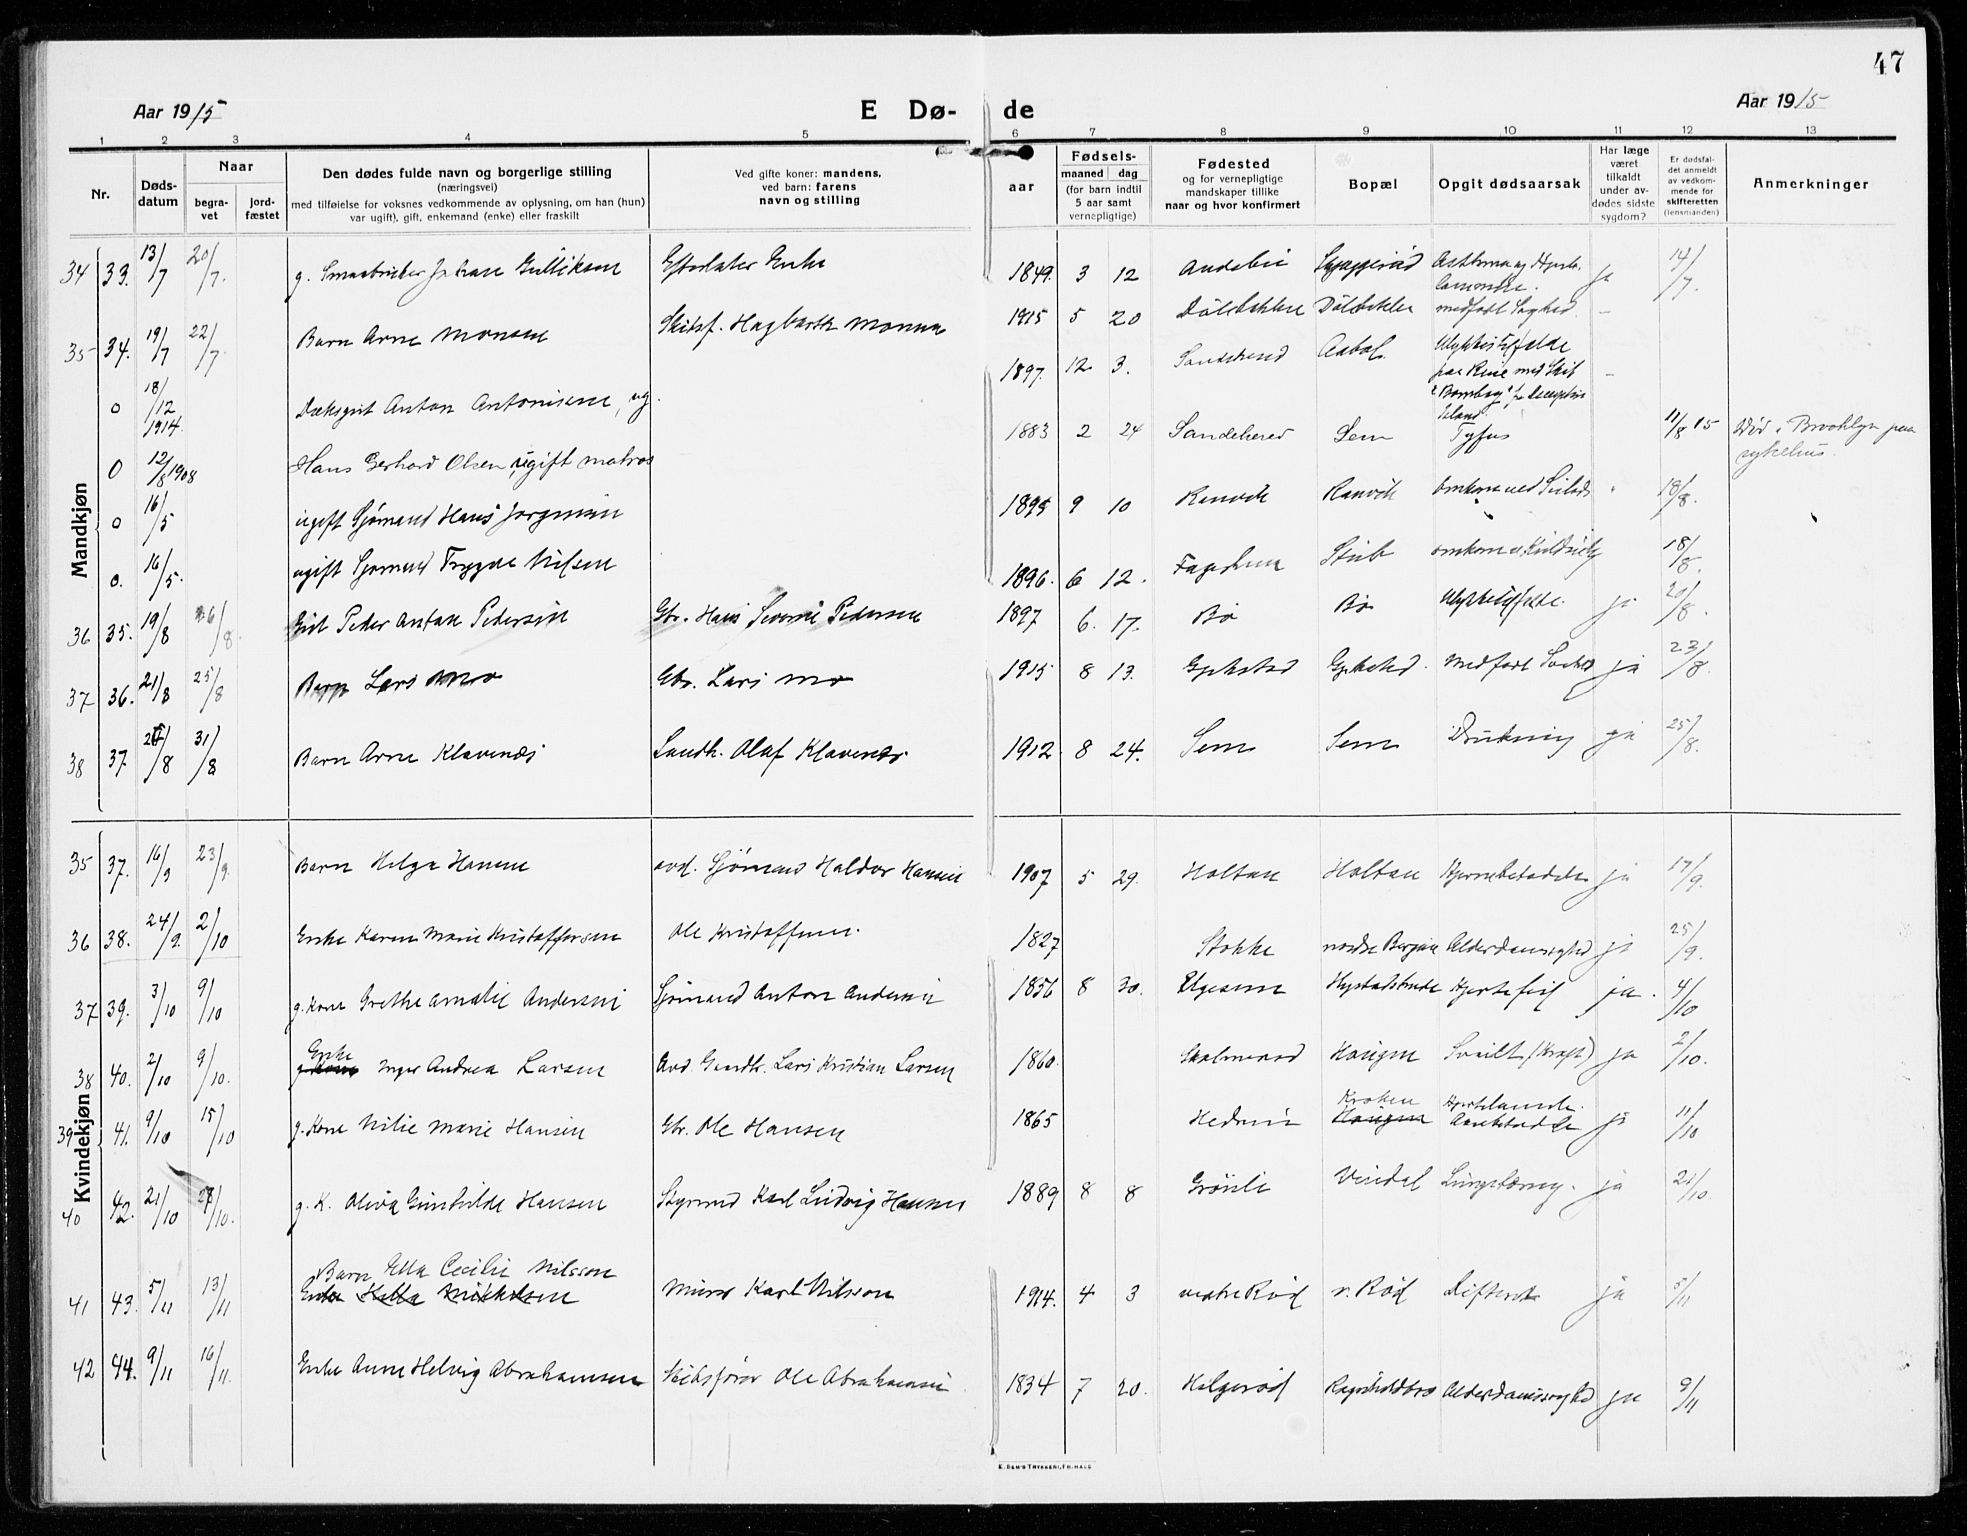 47
Aar 1915 E Dø- de Aar 1915
1 2 3 4 5 6 7 8 9 10 11 12 13
Nr. Døds-datum Naar begra-vet jord-fæstet
Den dødes fulde navn og borgerlige stilling
(næringsvei)
med tilføielse for voksnes vedkommende av oplysning, om han (hun)
var ugift), gift, enkemand (enke) eller fraskilt
Ved gifte koner: mandens,
ved barn: farens
navn og stilling
aar
Fødsels-
maaned dag
(for barn indtil
5 aar samt
vernepligtige)
Fødested
og for vernepligtige
mandskaper tillike
naar og hvor konfirmert
Bopæl
Opgit dødsaarsak
Har læge
været
tilkaldt
under av-
dødes sidste
sygdom?
Er dødsfal-
det anmeldt
av vedkom-
mende for
skifteretten
(lensmanden)
Anmerkninger
Mandkjøn
34 33. 13/7 20/7. g. Smaabruker Johan Gulliksen Efterlater Enke 1849. 3 12 Andebu Asthma og ja 14/7.
35 34. 19/7 22/7. Barn Arne Monsen Skibsf. Hagbarth Monsen 1915 5 20 Dölebakken Dölebakken medfødt Svaghed. –
o 18/12 1914. Dæksgut Anton Antonisen, ug. 1897. 12 3. Sandeherred Aabol. Ulykkestilfælde
paa Reise med Skib
"Bombay" fra Deception
Island. –
O 12/8 1908 Hans Gerhard Olsen, ugift matros 1883 2 24 Sandeherred Sem Tyfus 11/8 15 Død i Brooklyn paa
sykehus.
o 16/5 ugift Sjømand Hans Jørgensen 1895 9 10 Ranvik Ranvik omkom ved 18/8.
o. 16/5. ugift Sjømand Trygve Nilsen 1896. 6 12. Stub omkom v. 18/8.
36 35. 19/8 26/8. Gut Peder Anton Pedersen Gbr. Hans Severin Pedersen 1897 6. 17. Bø Bø Ulykkestilfælde. ja 20/8.
37 36. 21/8 25/8 Barn Lars Mo Gbr. Lars Mo 1915 8 13. Gjekstad Gjekstad. Medfødt ja 23/8.
38 37 24/8 31/8 Barn Arne Klavenæs Landh. Olaf Klavenæs. 1912 8 24. Sem Sem Drukning ja 25/8.
Kvindekjøn
35 37. 16/9 23/9. Barn Helga Hansen avd. Sjømand Haldor Hansen 1907 5 29. Holtan Holtan Hjernebetændelse ja 17/9.
36 38. 24/9. 2/10 Enke Karen Marie Kristoffersen Ole Kristoffersen. 1827 Stokke nordre Bergan Alderdomssvaghed ja 25/9.
37 39. 3/10 9/10 g. Kone Grethe Amalie Andersen Sjømand Anton Andersen 1856 8 30. Elgesem Hystadstrude Hjertefeil ja. 4/10
38 40. 2/10 9/10. Enke
g. Kone Inger Andrea Larsen Avd. Gaardbr. Lars Kristian Larsen 1860. Skolmerød Haugen Svulst (Kræft) ja 2/10.
39 41. 9/10 15/10 g. Kone Nilie Marie Hansen Gbr. Ole Hansen 1865 Hedrum Kroken
Haugen Hjertelamelse. ja 11/10
40 42. 21/10 27/10. g. K. Oliva Gunhilde Hansen Styrmand Karl Ludvig Hansen 1889 8 8 Grönli Vindal Lungetæring. ja 21/10.
41 43. 5/11 13/11 Barn Ella Cecilie Nilsson
Enke Mikkelsen Murer Karl Nilsson 1914. 4 3 vestre Rød v. Rød Difterit ja 5/11
42 44. 9/11 16/11. Enke Anne Helvig Abrahamsen Skibsfører Ole Abrahamsen 1834 7 20. Helgerød Ragnhildsrø Alderdomssvaghed ja 9/11
E. SEM'S TRYKKERI, FR.HALD